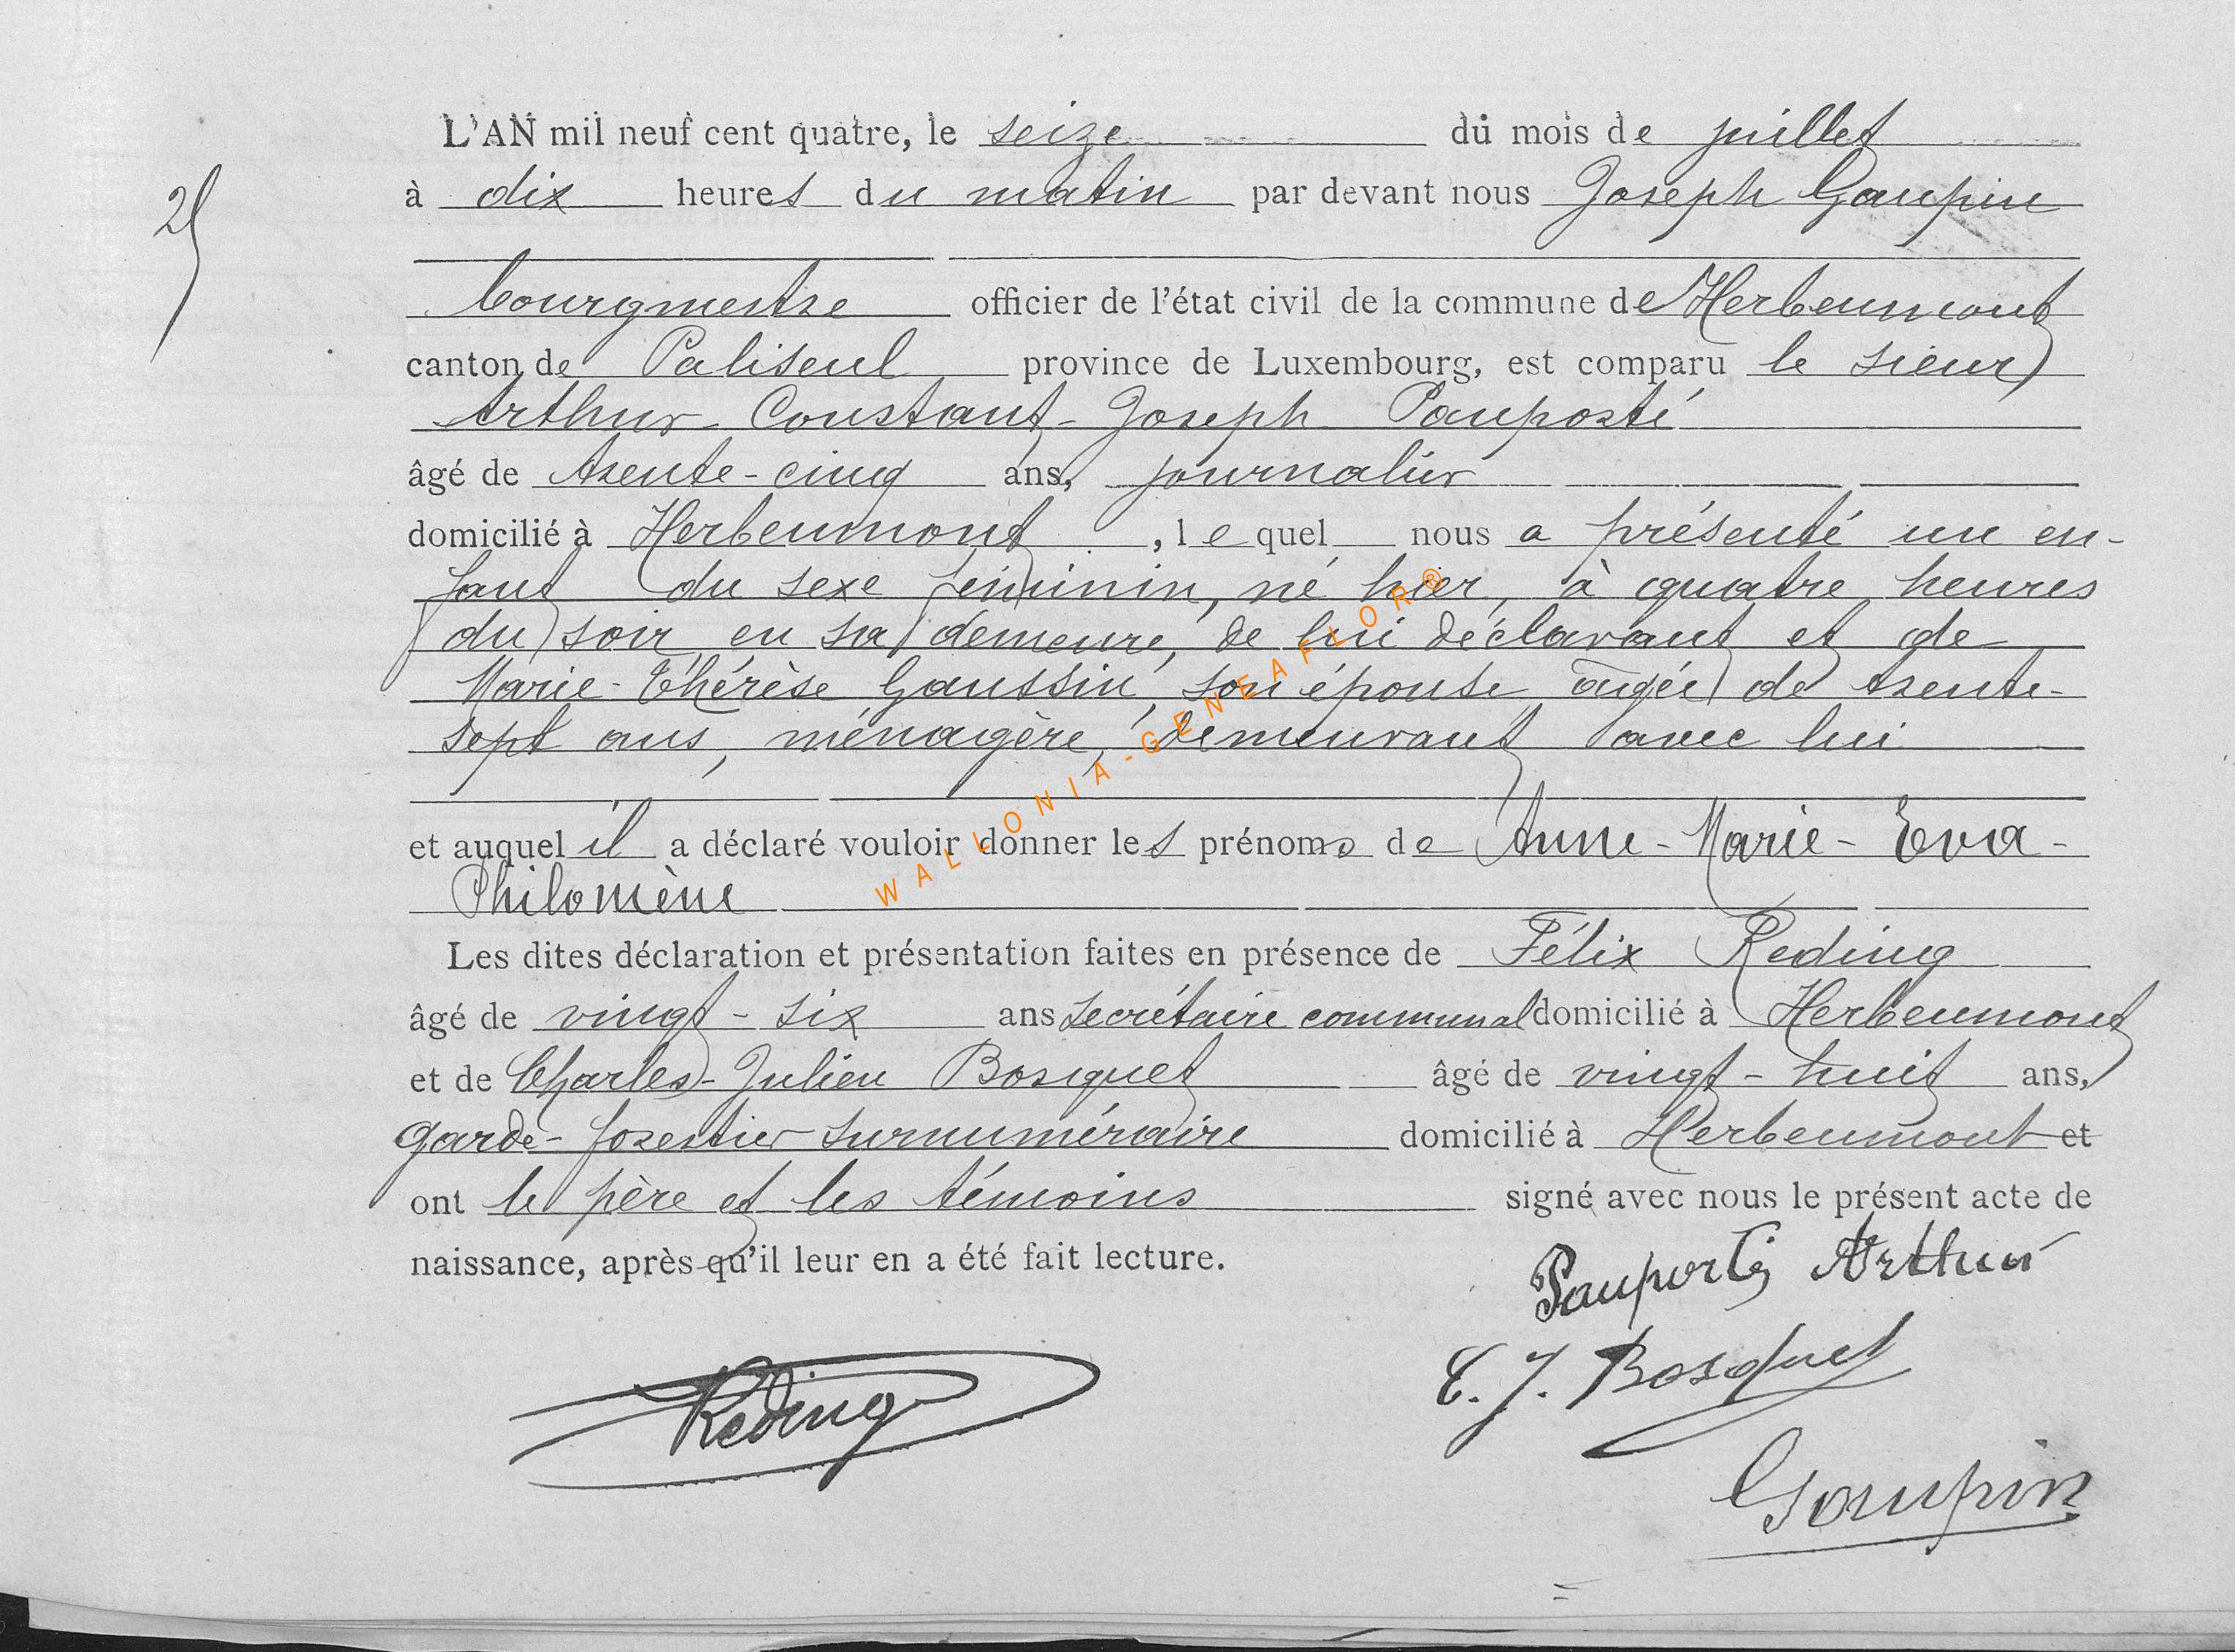 L'AN mil neuf cent quatre, le seize du mois de juillet
à dix heures du matin par devant nous Joseph Gaupin
bourgmestre officier de l'état civil de la commune de Herbeumont
canton de Paliseul province de Luxembourg, est comparu le sieur
Arthur-Constant-Joseph Pauporté
âgé de trente-cinq ans, journalier
domicilié à Herbeumont, lequel nous a présenté un en-
fant du sexe féminin, né hier, à quatre heures
du soir en sa demeure, de lui déclarant et de
Marie-Thérèse Gaussin, son épouse, âgée de trente-
sept ans, ménagère, demeurant avec lui
et auquel il a déclaré vouloir donner les prénoms de Anne-Marie-Eva-
Philomène
Les dites déclaration et présentation faites en présence de Félix Reding
âgé de vingt-six ans secrétaire communal domicilié à Herbeumont
et de Charles-Julien Bosquet âgé de vingt-huit ans,
garde-forestier surnuméraire domicilié à Herbeumont et
ont le père et les témoins signé avec nous le présent acte de
naissance, après qu'il leur en a été fait lecture.
Pauporté Arthur
C. J. Bosquet
Reding
Gaupin
WALLONIA-GENEAFLOR®